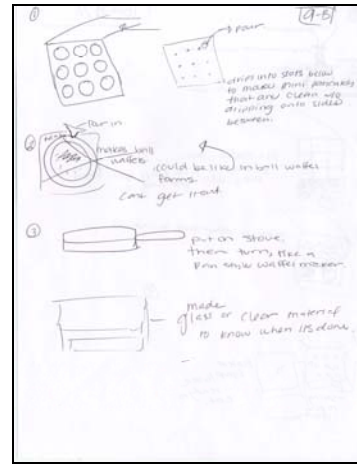 ①
pour
drips into slots below
to make mini pancakes
that are clean w/o
dripping onto sides
between.
②
Pour in
makes ball
waffles
could be like in ball waffle
forms.
cant get
③
put on stove,
then turn, like a
Pan style waffle maker.
made
glass or clear material
to know when its done.